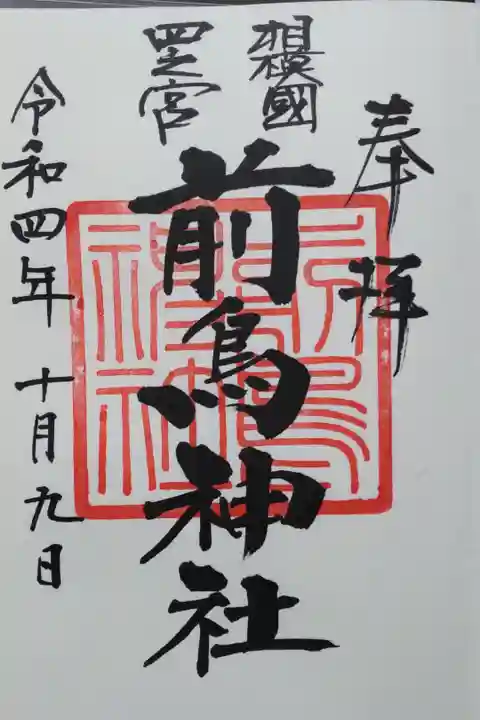 奉拝
相模國
四之宮
前鳥神社
令和四年 十月九日